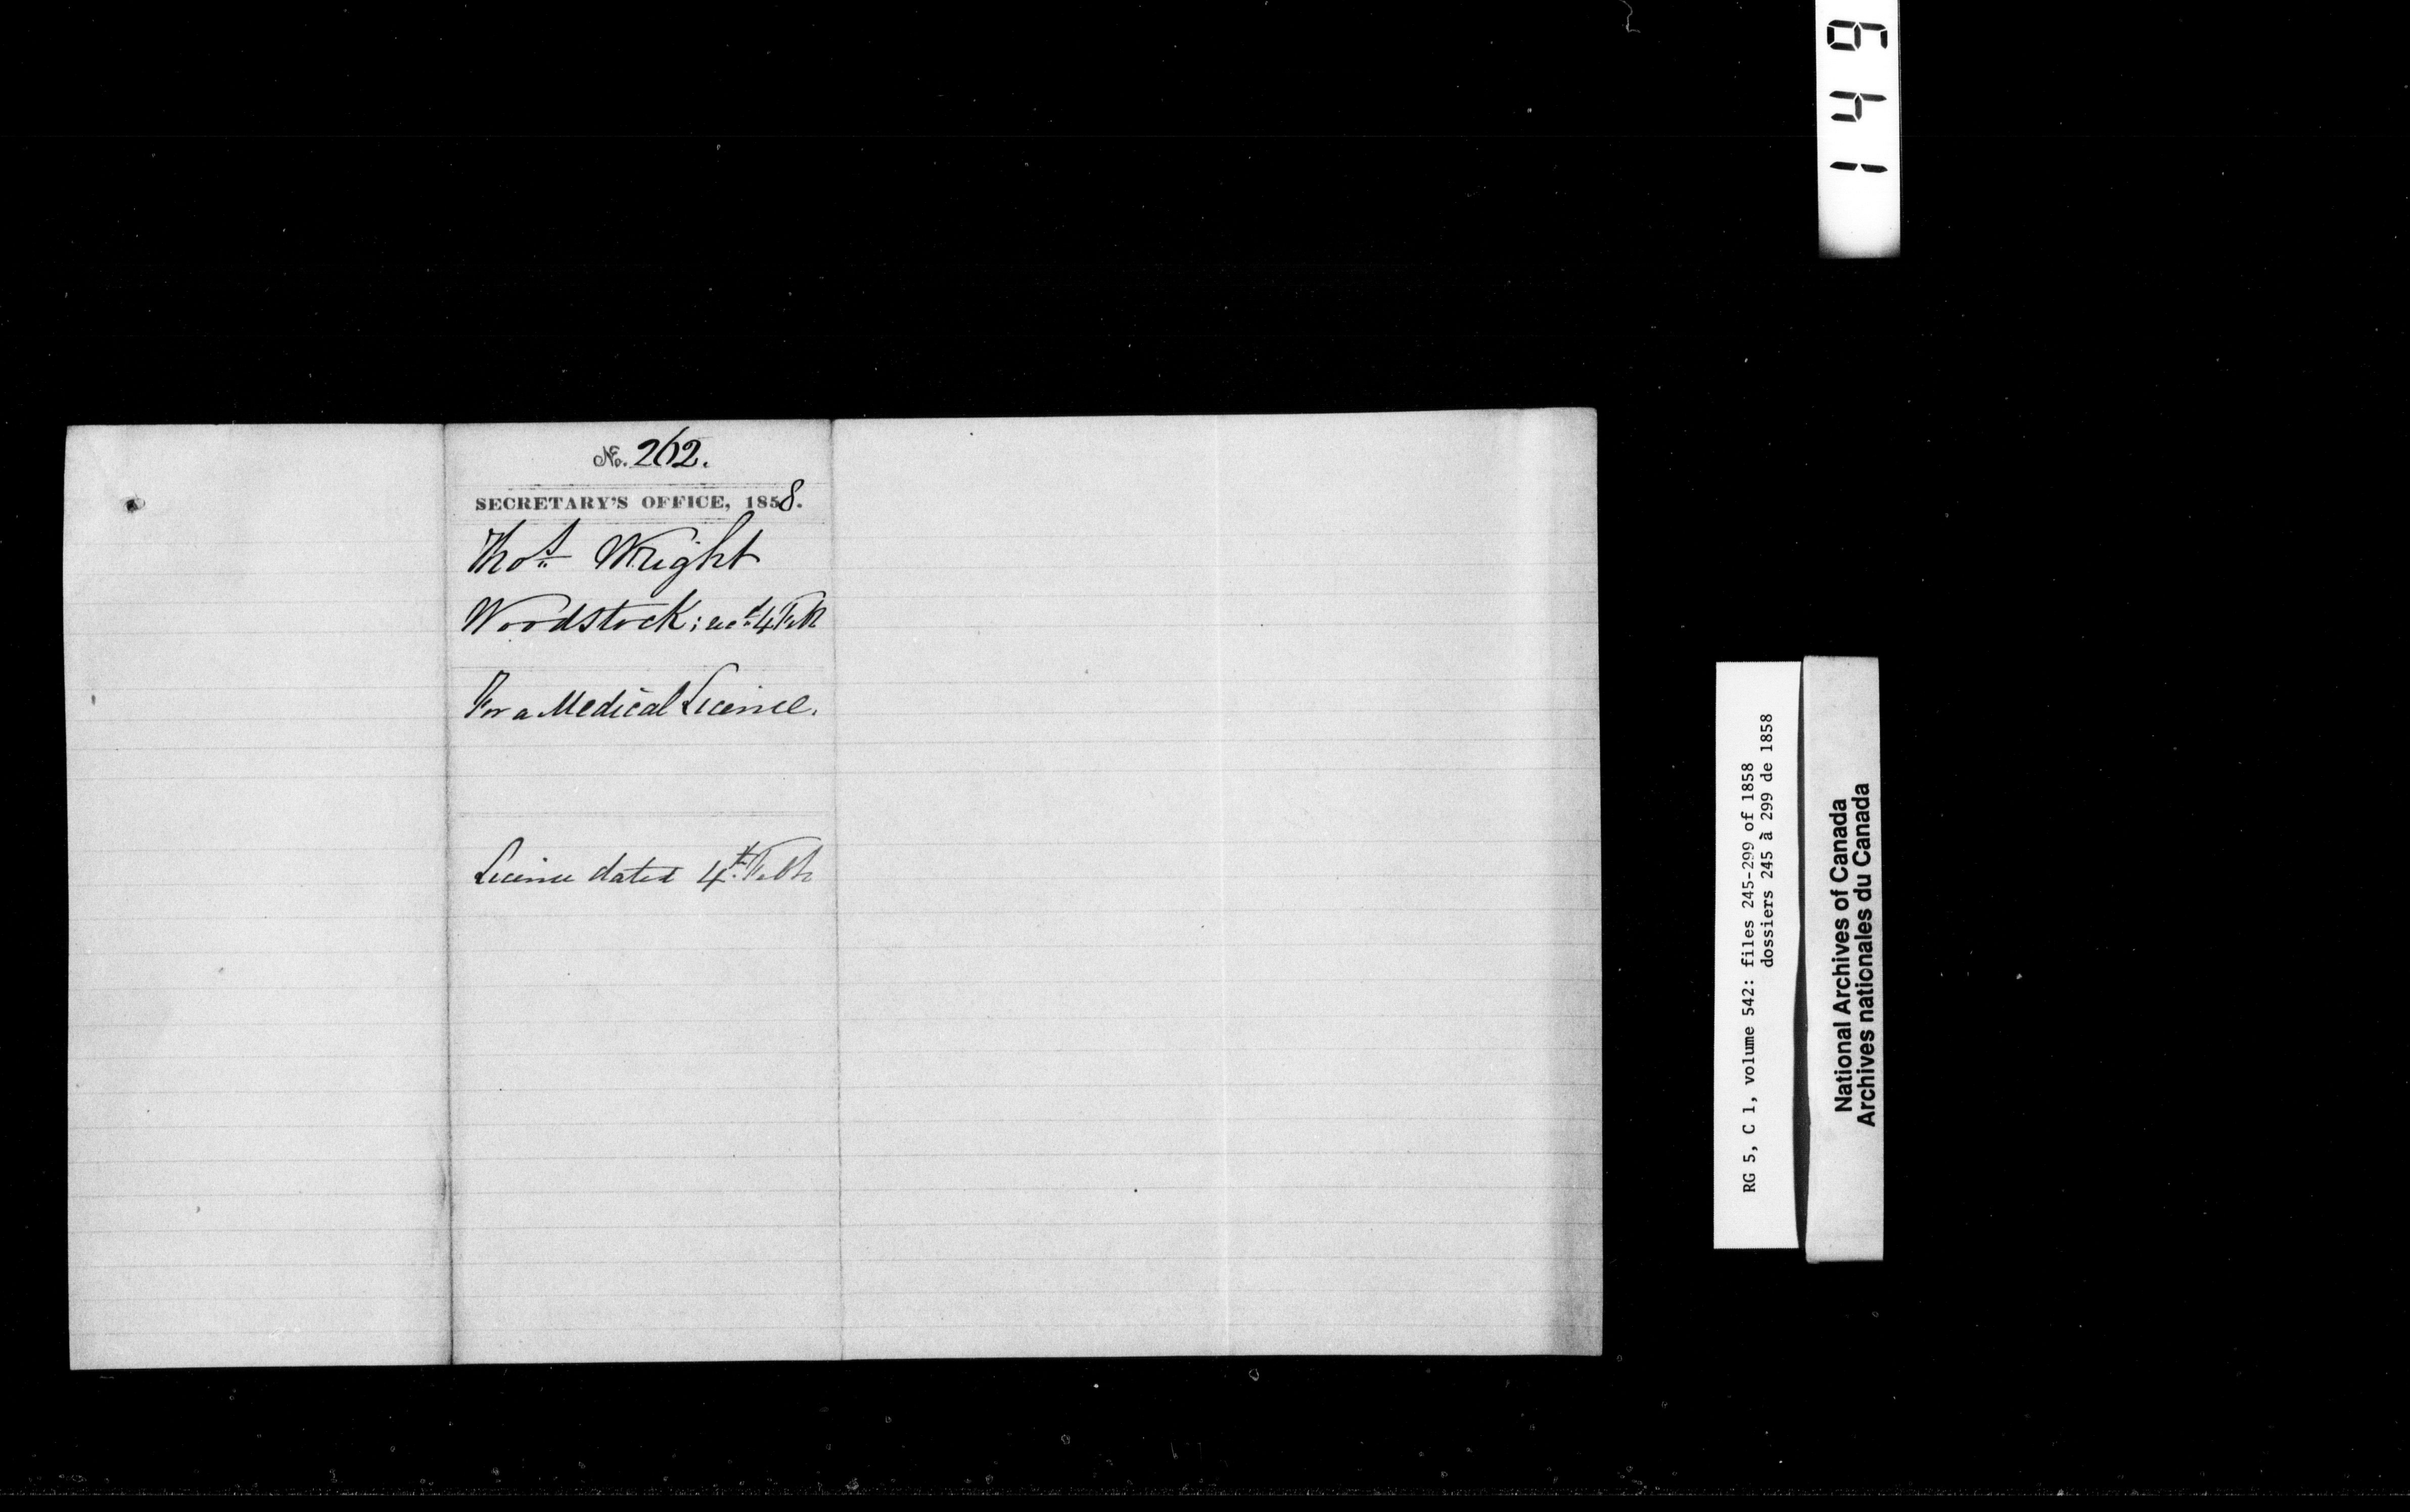 No. 262.
SECRETARY'S OFFICE, 1858.
Thos Wright
Woodstock; recd 4 Feb
For a Medical Licence.
Licence dated 4th Feb
RG 5, C 1, volume 542: files 245-299 of 1858
dossiers 245 à 299 de 1858
National Archives of Canada
Archives nationales du Canada
149